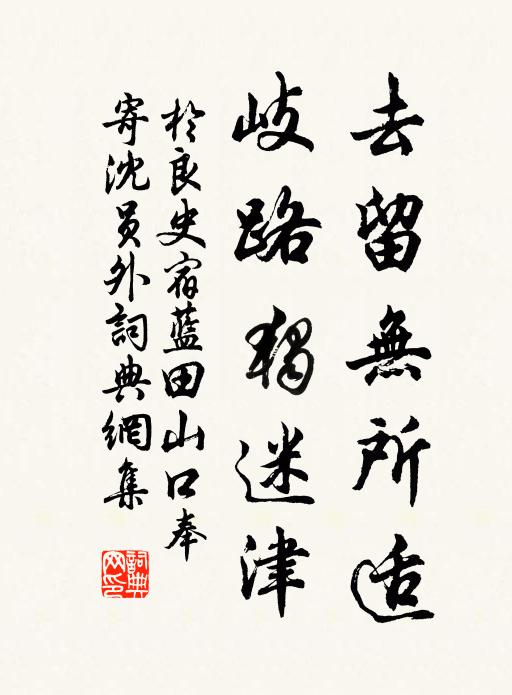 去留無所适
岐路獨迷津
於良史宿藍田山口奉
寄沈員外詞典網集
詞典
网印